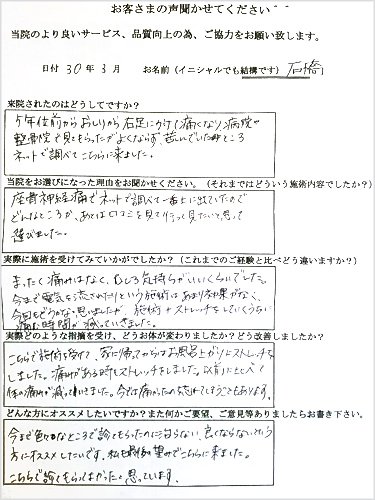 お客さまの声聞かせてください
当院のより良いサービス、品質向上の為、ご協力をお願い致します。
日付 30年 3月 お名前（イニシャルでも結構です） 石橋
来院されたのはどうしてですか？
5年位前からおしりから右足にかけて痛くなり、病院や
整骨院で見てもらったがよくならず、苦んでいたところ
ネットで調べてこちらに来ました。
当院をお選びになった理由をお聞かせください。（それまではどういう施術内容でしたか？）
座骨神経痛でネットで調べて一番上に出ていたので
どんなところか、あとは口コミを見て行って見たいと思って
選びました。
実際に施術を受けてみていかがでしたか？（これまでのご経験と比べどう違いますか？）
まったく痛みはなく、むしろ気持ちがいいくらいでした。
今まで電気を流されたりという施術はあまり効果がなく、
今回もどうかな思いましたが、施術とストレッチをしていくうちに
痛む時間が減っていきました。
実際どのような指摘を受け、どうお体が変わりましたか？どう改善しましたか？
こちらで施術を受けて、家に帰ってからはお風呂上がりにストレッチを
しました。痛みがある時もストレッチをしました。以前にくらべて
体の痛みが減っていきました。今では痛かったのも忘れてしまうこともあります。
どんな方にオススメしたいですか？また何かご要望、ご意見等ありましたらお書き下さい。
今まで色々なところで診てもらったのに治らない、良くならないという
方にオススメしたいです。私も最後の望みでこちらに来ました。
こちらで診てもらってよかったと思っています。